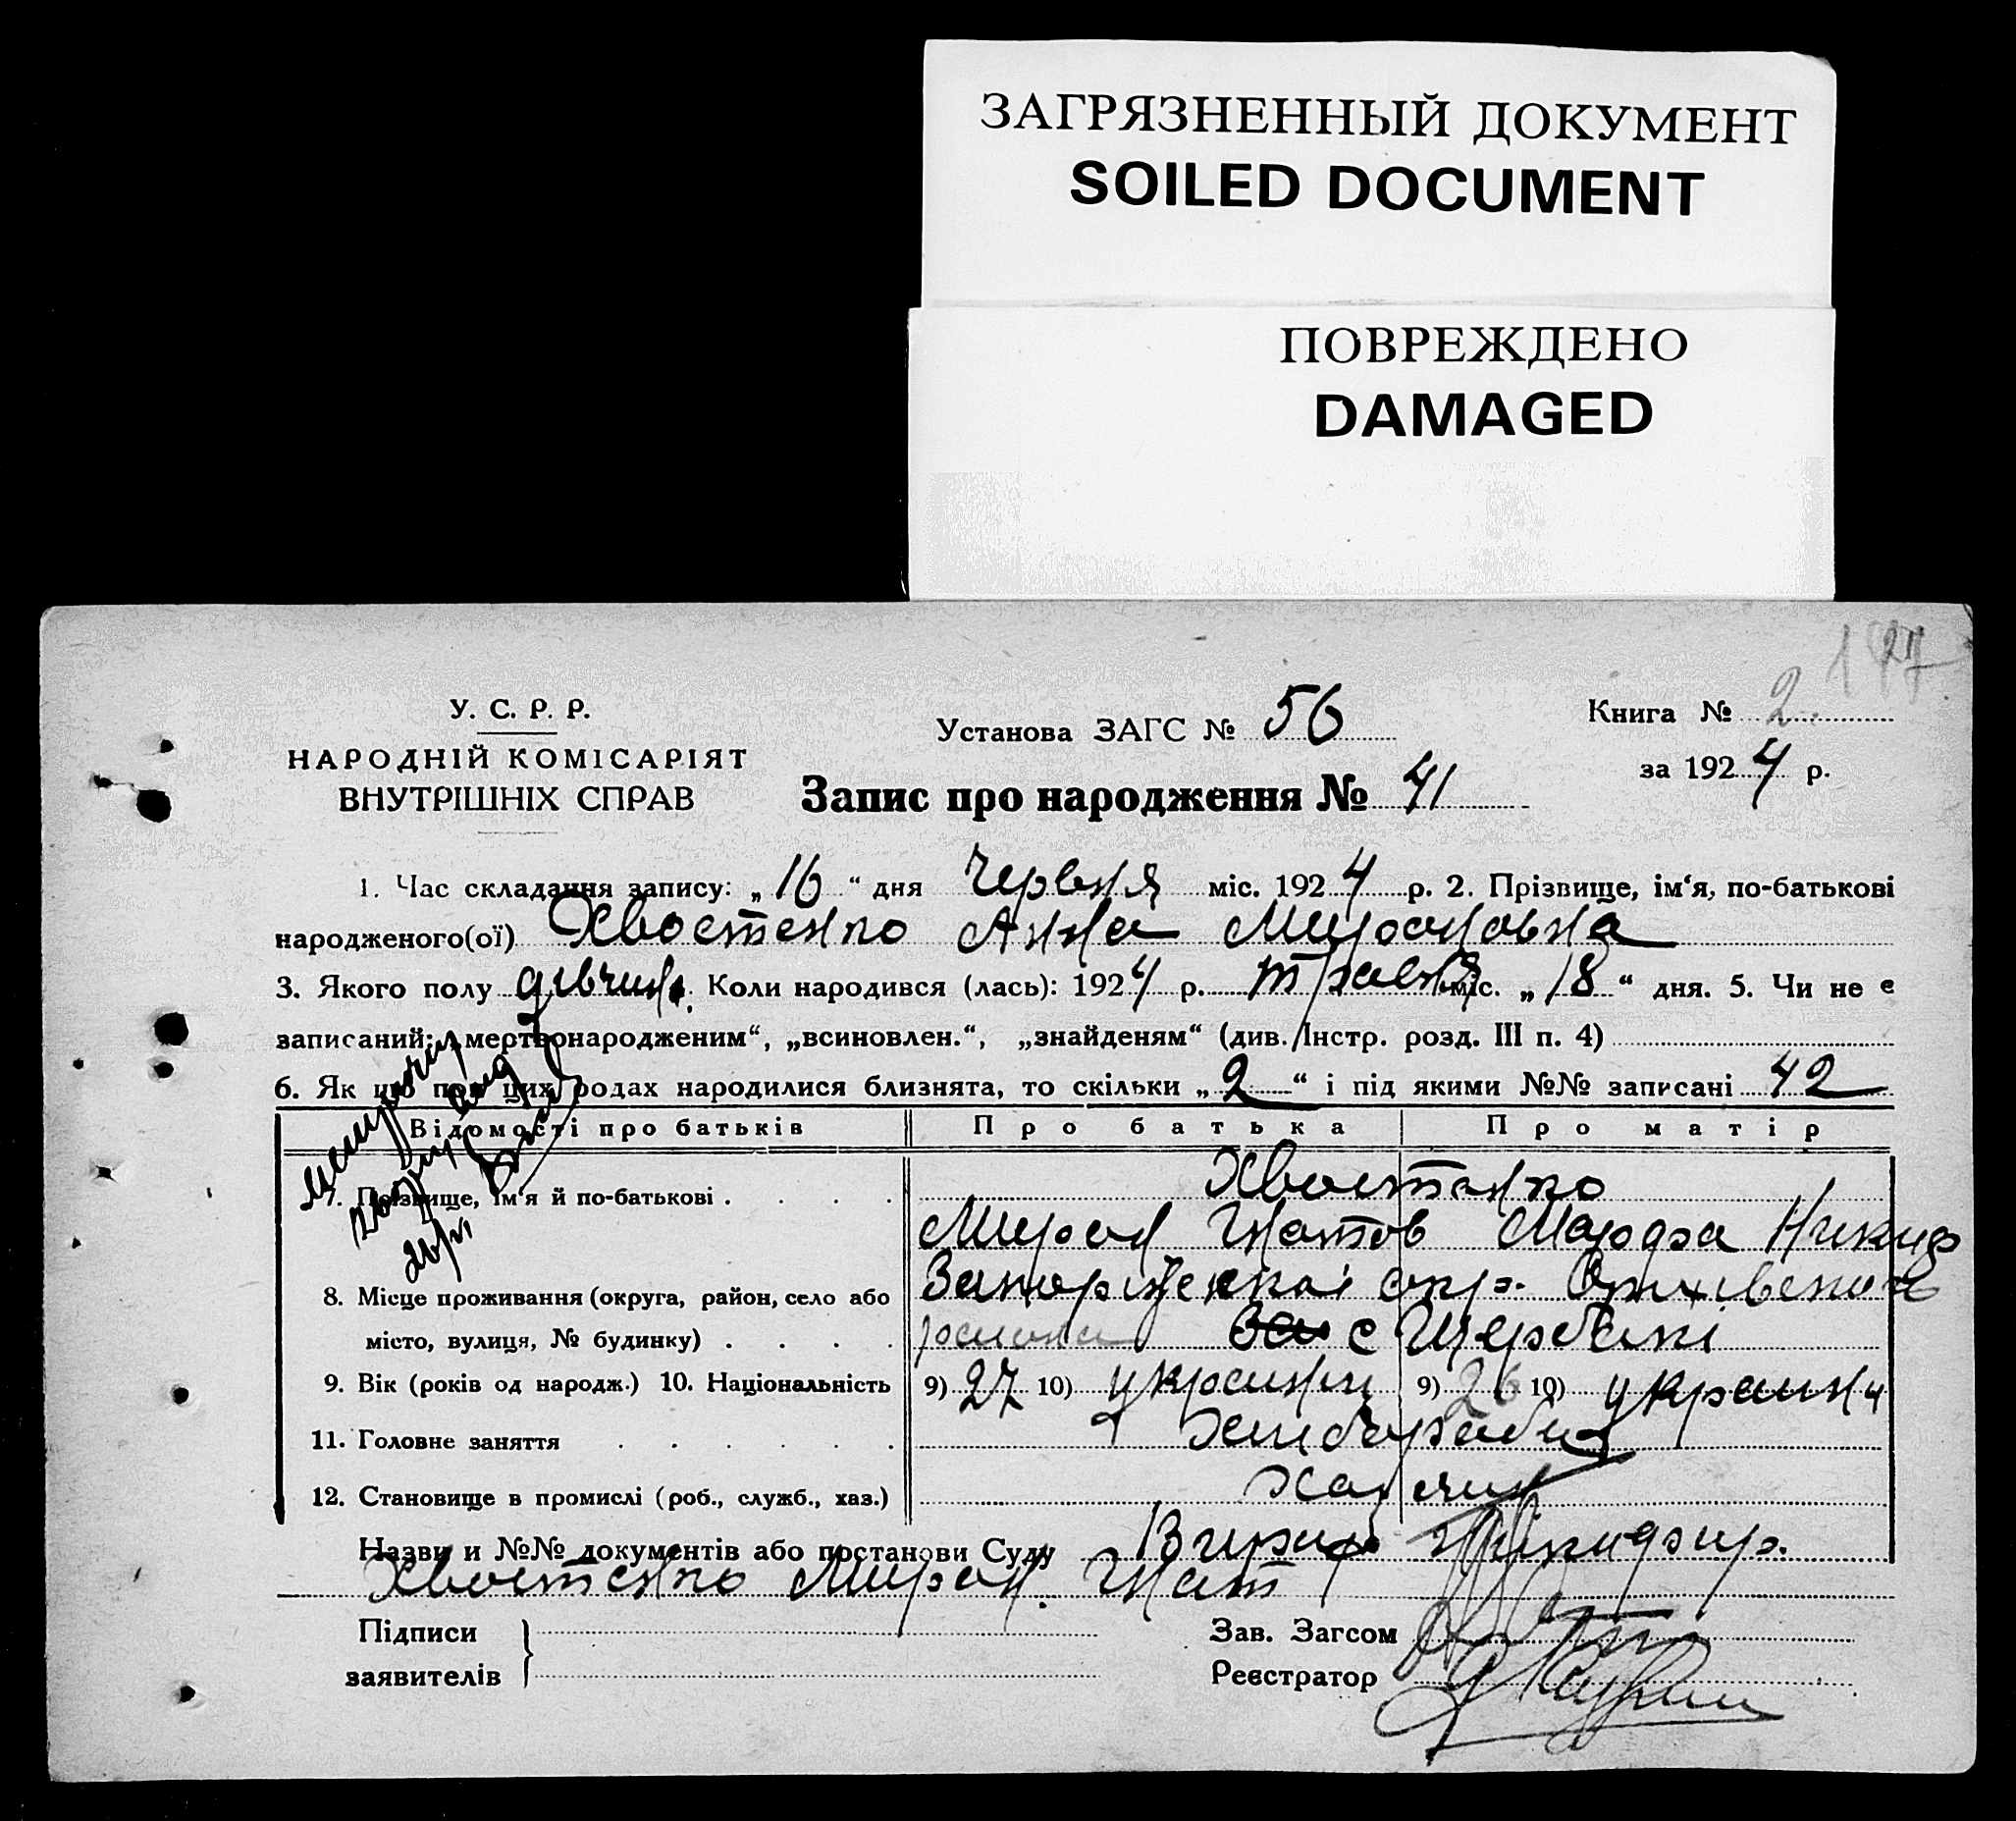 ЗАГРЯЗНЕННЫЙ ДОКУМЕНТ
SOILED DOCUMENT
ПОВРЕЖДЕНО
DAMAGED
У. С. Р. Р.
НАРОДНІЙ КОМІСАРІЯТ
ВНУТРІШНІХ СПРАВ
Установа ЗАГС № 56
Книга № 2
за 1924 р.
Запис про народження № 41
1. Час складання запису: „16“ дня Червня міс. 1924 р. 2. Прізвище, ім‘я, по-батькові
народженого(ої) Хвостенко Анна Мироновна
3. Якого полу дівчина. Коли народився (лась): 1924 р. травня міс. „18“ дня. 5. Чи не є
записаний: „мертвонародженим“, „всиновлен.“, „знайденям“ (див. Інстр. розд. III п. 4)
6. Як що при цих родах народилися близнята, то скільки „2“ і під якими №№ записані 42
Відомості про батьків Про батька Про матір
7. Прізвище, ім‘я й по-батькові Хвостенко
Мирон Игнатов Марфа Никиф
8. Місце проживання (округа, район, село або Запоріжської окр.
місто, вулиця, № будинку) района с Щербаки
9. Вік (років од народж.) 10. Національність 9) 27 10) україн 9) 26 10) україн
11. Головне заняття Хлібороби
12. Становище в промислі (роб., служб., хаз.)
Назви и №№ документів або постанови Суду
Хвостенко Мирон Игнат
Підписи
заявителів
Зав. Загсом
Реєстратор